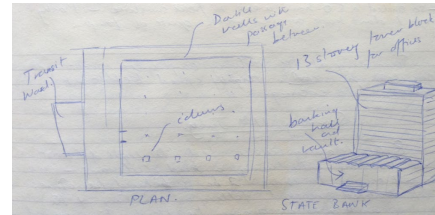 Double
walls with
passage
between
Transit
Ward
columns
PLAN.
13 storey tower block
for offices
banking
hall
and
vault.
STATE BANK